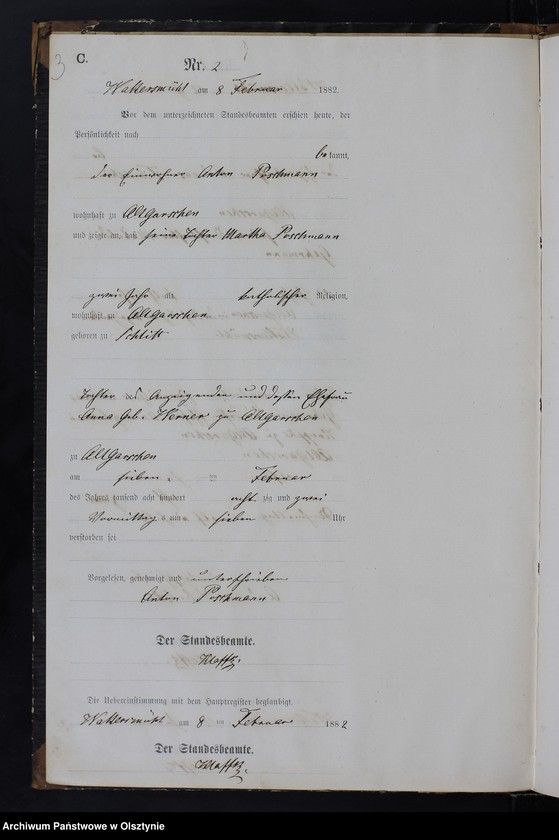 3
C.
Nr. 2
Waltersmühl am 8 Februar 1882.
Vor dem unterzeichneten Standesbeamten erschien heute, der
Persönlichkeit nach
bekannt,
der Einwohner Anton Poschmann
wohnhaft zu Altgarschen
und zeigte an, daß seine Tochter Martha Poschmann
zwei Jahr alt katholischer Religion,
wohnhaft zu Altgarschen
geboren zu Schlitt
Tochter des Anzeigenden und dessen Ehefrau
Anna geb. Werner zu Altgarschen
zu Altgarschen
am sieben ten Februar
des Jahres tausend acht hundert acht zig und zwei
Vormittag s um sieben Uhr
verstorben sei
Vorgelesen, genehmigt und unterschrieben
Anton Poschmann
Der Standesbeamte.
Die Uebereinstimmung mit dem Hauptregister beglaubigt.
Waltersmühl am 8 ten Februar 1882
Der Standesbeamte.
Archiwum Państwowe w Olsztynie